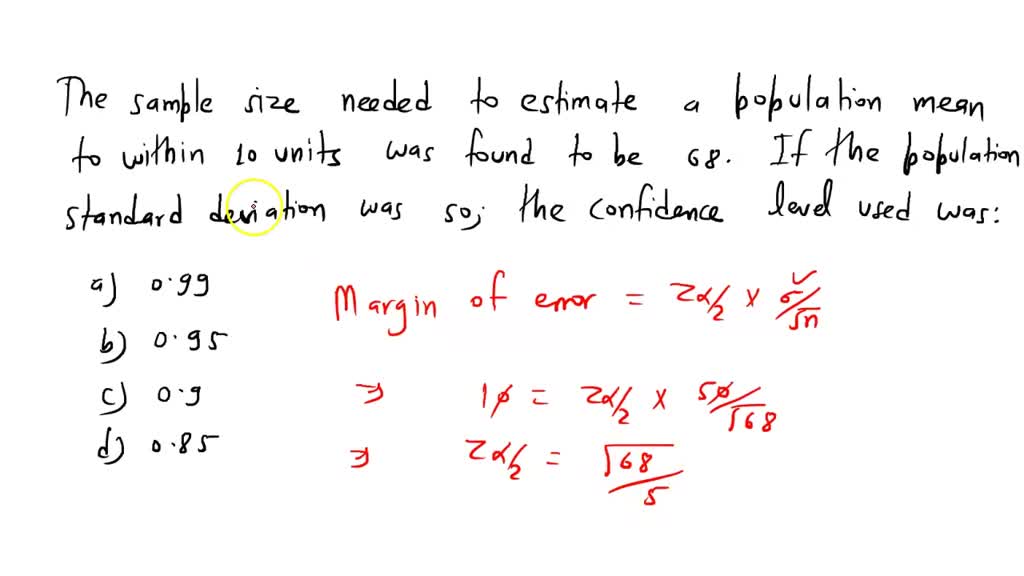 The sample size needed to estimate a population mean
to within 10 units was found to be 68. If the population
standard deviation was 50, the confidence level used was:
a) 0.99
b) 0.95
c) 0.9
d) 0.85
Margin of error = Zα/2 × σ/√n
⇒ 10 = Zα/2 × 50/√68
⇒ Zα/2 = √68/5